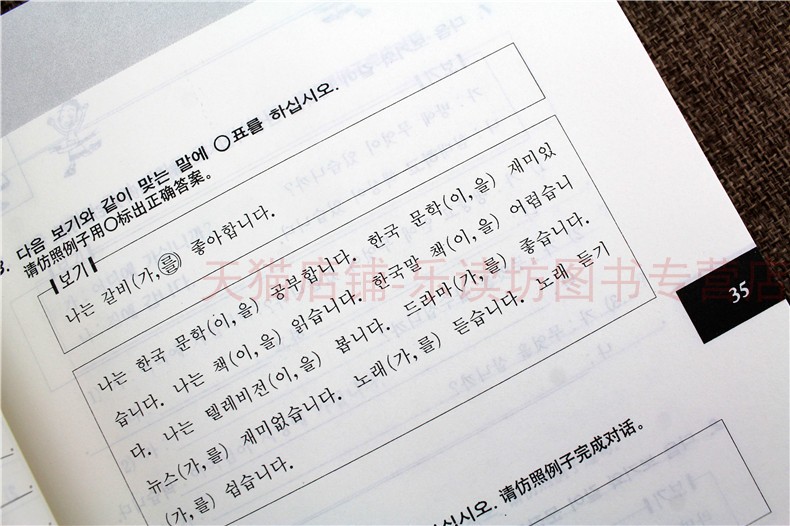 3. 다음 보기와 같이 맞는 말에 ○표를 하십시오.
请仿照例子用○标出正确答案。
보기
나는 갈비(가,를) 좋아합니다.
나는 한국 문학(이,을) 공부합니다. 한국 문학(이,을) 재미있
습니다. 나는 책(이,을) 읽습니다. 한국말 책(이,을) 어렵습니
다. 나는 텔레비전(이,을) 봅니다. 드라마(가,를) 좋습니다.
뉴스(가,를) 재미없습니다. 노래(가,를) 듣습니다. 노래 듣기
(가,를) 쉽습니다.
십시오. 请仿照例子完成对话。
35
天猫店铺-乐读坊图书专营店